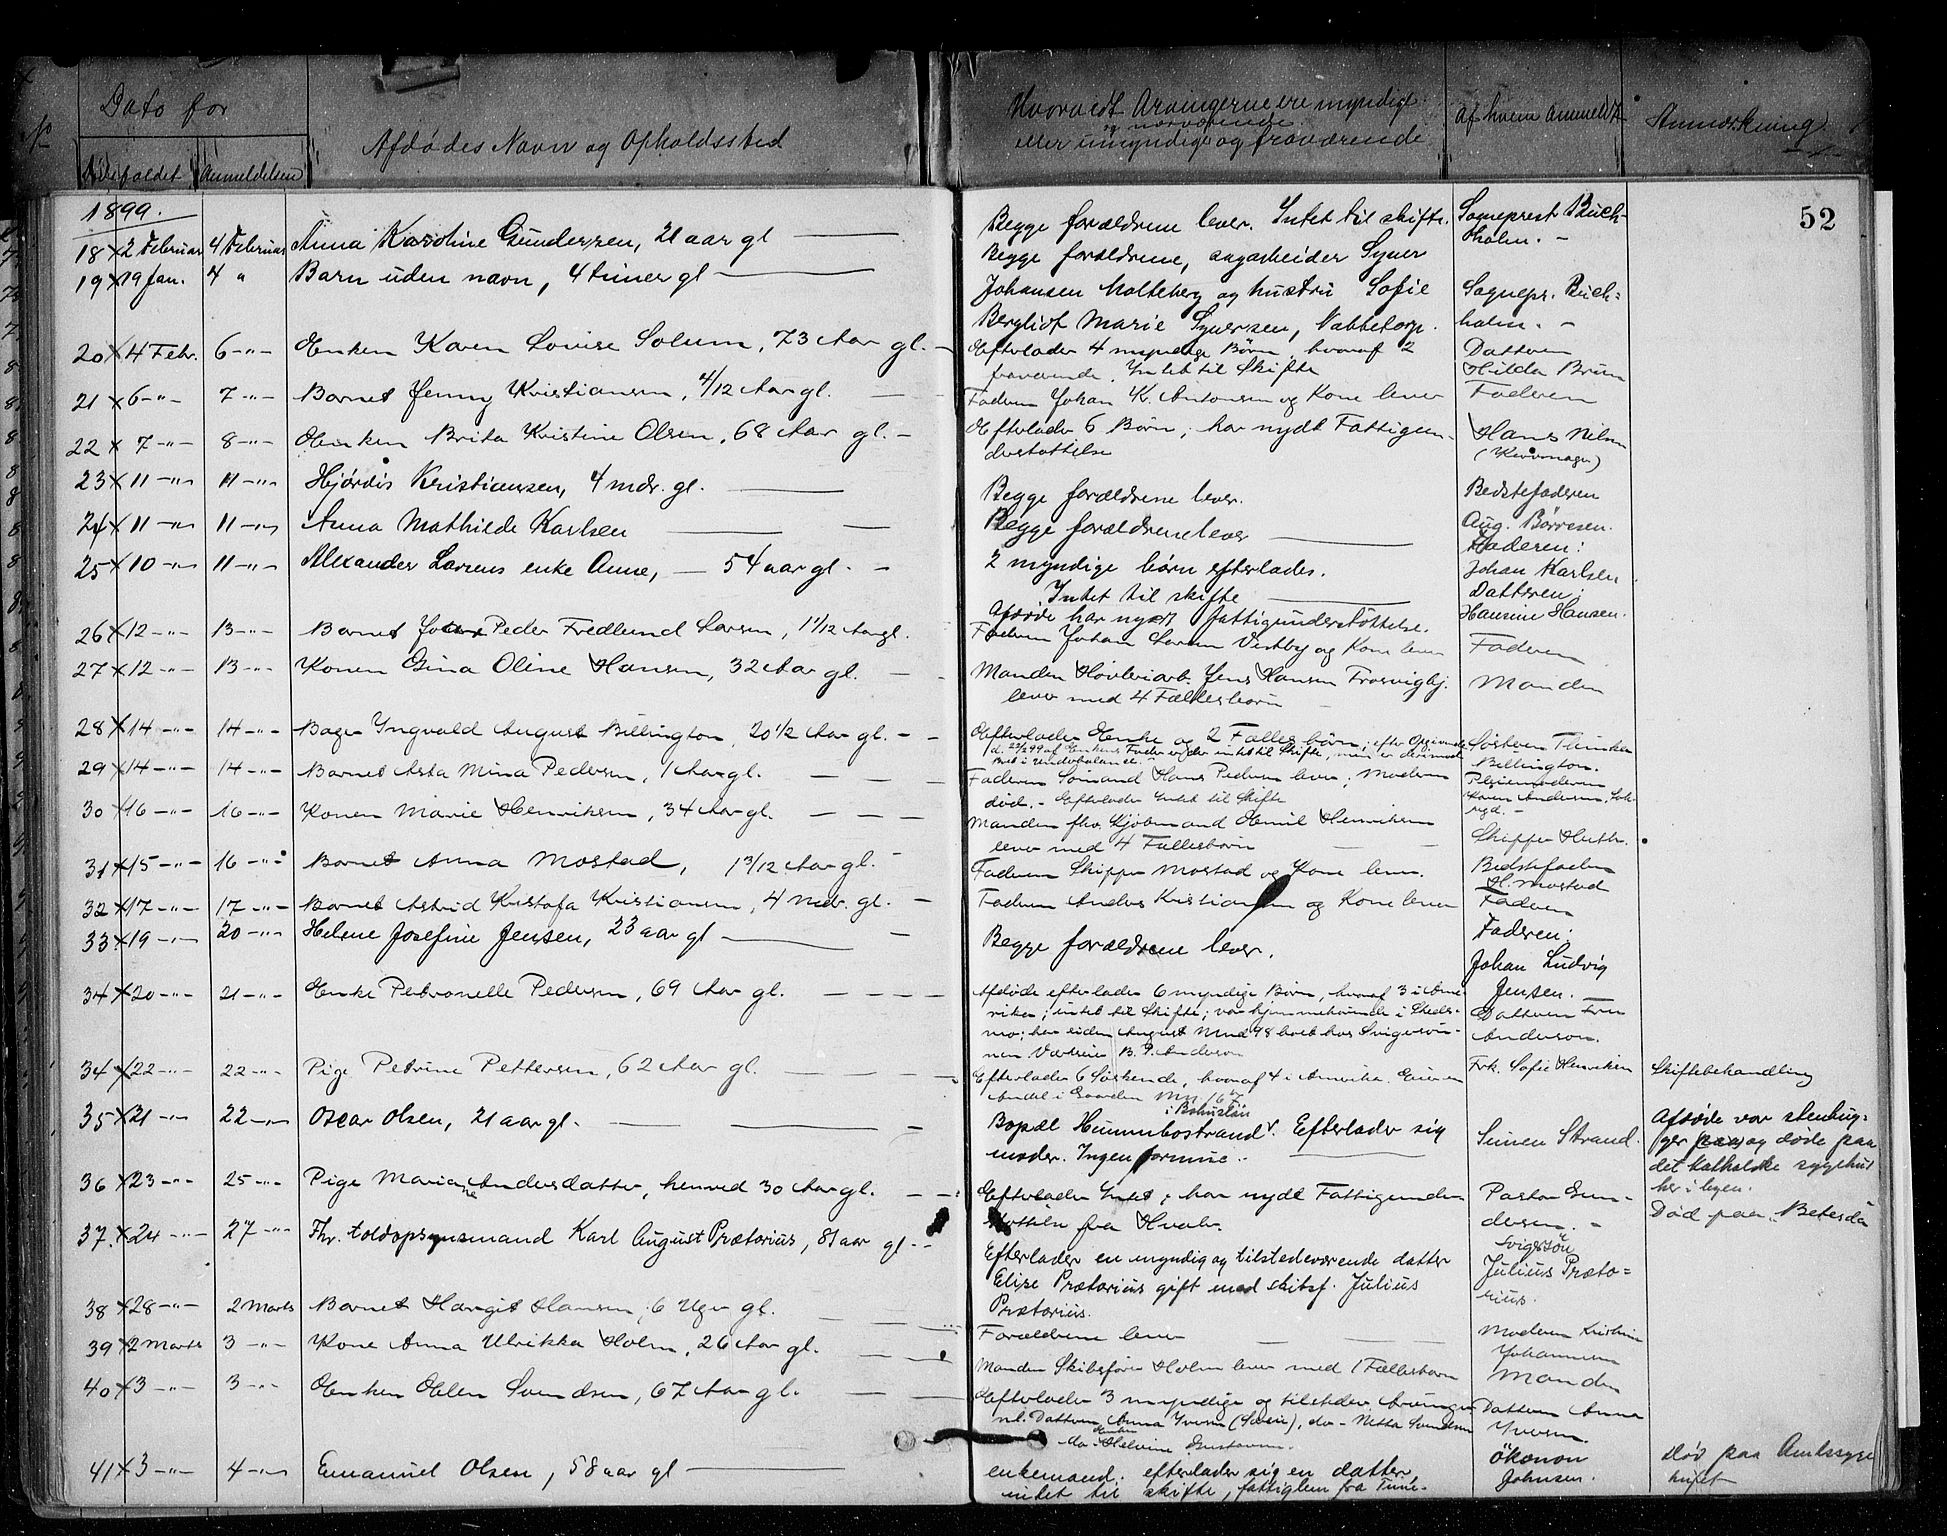 Dato for
Dødsfaldet
Anmeldelsen
Afdødes Navn og Opholdssted
Hvorvidt Arvingerne ere myndige
eller umyndige og nærværende og fraværende
Af hvem anmeldt
Anmærkning
52
1899.
18 2 Februar 4 Februar Anna Karoline Gundersen, 21 aar gl
Begge forældrene lever. Intet til skifte.
Sogneprest Buch-
holm. -
19 19 Jan. 4 " Barn uden navn, 4 timer gl
Begge forældrene, sagarbeider Syver
Johansen Molteberg og hustru Sofie
Bergliot Marie Syversen, Nabbetorp.
Sognepr. Buch-
holm. -
20 4 Febr. 6 -"- Enken Karen Lovise Solum, 73 Aar gl.
Efterlader 4 myndige Børn, hvoraf 2
fraværende. Intet til Skifte
Datteren
Hilda Brun
21 6 -"- 7 -"- Barnet Jenny Kristiansen, 4/12 Aar gl.
Faderen Johan K. Antonsen og Kone lever
Faderen
22 7 -"- 8 -"- Enken Brita Kristine Olsen, 68 Aar gl.
Efterlader 6 Børn; har nydt Fattigun-
derstøttelse
Hans Nilsen
23 11 -"- 11 -"- Hjørdis Kristiansen, 4 mdr. gl.
Begge forældrene lever.
Bedstefaderen
Aug. Børresen.
24 11 -"- 11 -"- Anna Mathilde Karlsen
Begge forældrene lever
Faderen:
Johan Karlsen
25 10 -"- 11 -"- Alexander Larsens enke Anne, 54 aar gl.
2 myndige børn efterlades.
Intet til skifte
Afdøde har nydt fattigunderstøttelse.
Datteren:
Hansine Hansen.
26 12 -"- 13 -"- Barnet Peder Fredlund Larsen, 11/12 Aar gl.
Faderen Johan Larsen Vestby og Kone lever
Faderen
27 12 -"- 13 -"- Konen Gina Oline Hansen, 32 Aar gl.
Manden Høvleriarb. Jens Hansen Trosvigbj.
lever med 4 Fællesbørn
Manden
28 14 -"- 14 -"- Bager Ingvald August Billington, 20 1/2 Aar gl.
Efterlader Enke og 2 Fællesbørn; efter Opgivende
af Enkens Fader er der intet til Skifte, men er derimod
Boet i Underbalance.
Søsteren
Billington.
29 14 -"- 14 -"- Barnet Asta Mina Pedersen, 1 Aar gl.
Faderen Sømand Hans Pedersen lever; Moderen
død. - Efterlader Intet til Skifte
Pleiemoderen
Karen Andersen,
30 16 -"- 16 -"- Konen Marie Henriksen, 34 Aar gl.
Manden fhv. Kjøbmand Emil Henriksen
lever med 4 Fællesbørn
Skipper
31 15 -"- 16 -"- Barnet Anna Mostad, 1 3/12 Aar gl.
Faderen Skipper Mostad og Kone lever.
Bedstefaderen
H. Mostad
32 17 -"- 17 -"- Barnet Astrid Kristofa Kristiansen, 4 Mdr. gl.
Faderen Anders Kristiansen og Kone lever
Faderen
33 19 -"- 20 -"- Helene Josefine Jensen, 23 aar gl
Begge forældrene lever.
Faderen:
Johan Ludvig
Jensen.
34 20 -"- 21 -"- Enke Petronelle Pedersen, 69 Aar gl.
Afdøde efterlader 6 myndige Børn, hvoraf 3 i Ame-
rika; intet til Skifte; var hjemmehørende i Skeds-
mo; har siden August Mnd 98 boet hos Svigersøn-
nen B. P. Anderson
Datteren Fru
Anderson.
34 22 -"- 22 -"- Pige Petrine Pettersen, 62 Aar gl.
Efterlader 6 Søskende, hvoraf 4 i Amerika. Eier en
Andel i Gaarden
Frk. Sofie Henriksen
Skiftebehandling
35 21 -"- 22 -"- Oscar Olsen, 21 aar gl.
Bopæl Hunnebostrand i Bohuslän. Efterlader sig
moder. Ingen formue.
Simen Strand.
Afdøde var stenhug-
ger og døde paa
det katholske sygehus
her i byen.
36 23 -"- 25 -"- Pige Mariane Andersdatter, henved 30 Aar gl.
Efterlader Intet; har nydt Fattigunder-
støttelse fra Hvaler.
Pastor Gun-
dersen. -
Død paa "Betesda
37. 24 -"- 27 -"- Fhv. toldopsynsmand Karl August Prætorius, 81 aar gl.
Efterlader en myndig og tilstedeværende datter
Elise Prætorius gift med skibsf. Julius
Prætorius.
Svigersøn
Julius Præto-
rius.
38 28 -"- 2 Marts Barnet Margit Hansen, 6 Uger gl.
Forældrene lever
Moderen Kristine
Johannesen
39 2 Marts 3 -"- Kone Anna Ulrikka Holm, 26 Aar gl.
Manden Skibsfører Holm lever med 1 Fællesbarn
Manden
40 3 -"- 3 -"- Enken Elen Svendsen, 67 Aar gl.
Efterlader 3 myndige og tilstedev. Arvinger
nl. Datteren Anna Iversen do - Netta Svendsen
do Enken Helvine Gustavsen.
Datteren Anna
Iversen
41 3 -"- 4 -"- Emanuel Olsen, 58 aar gl
enkemand. efterlader sig en datter,
intet til skifte, fattiglem fra Tune.
Økonom
Johnsen.
død paa Amtssyge
huset